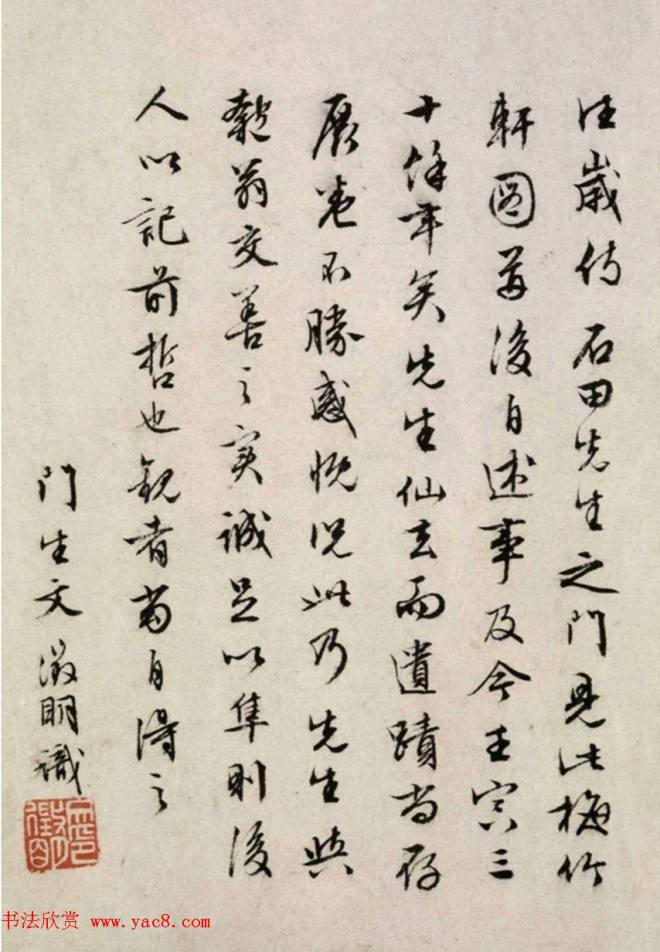 往歲侍石田先生之門見此梅竹
軒圖并後自述事及今壬寅三
十餘年矣先生仙去而遺蹟尚存
展卷不勝感慨況此乃先生與
翁交善之實誠足以準則後
人以記前哲也觀者當自得之
門生文徵明識
徵明
书法欣赏 www.yac8.com